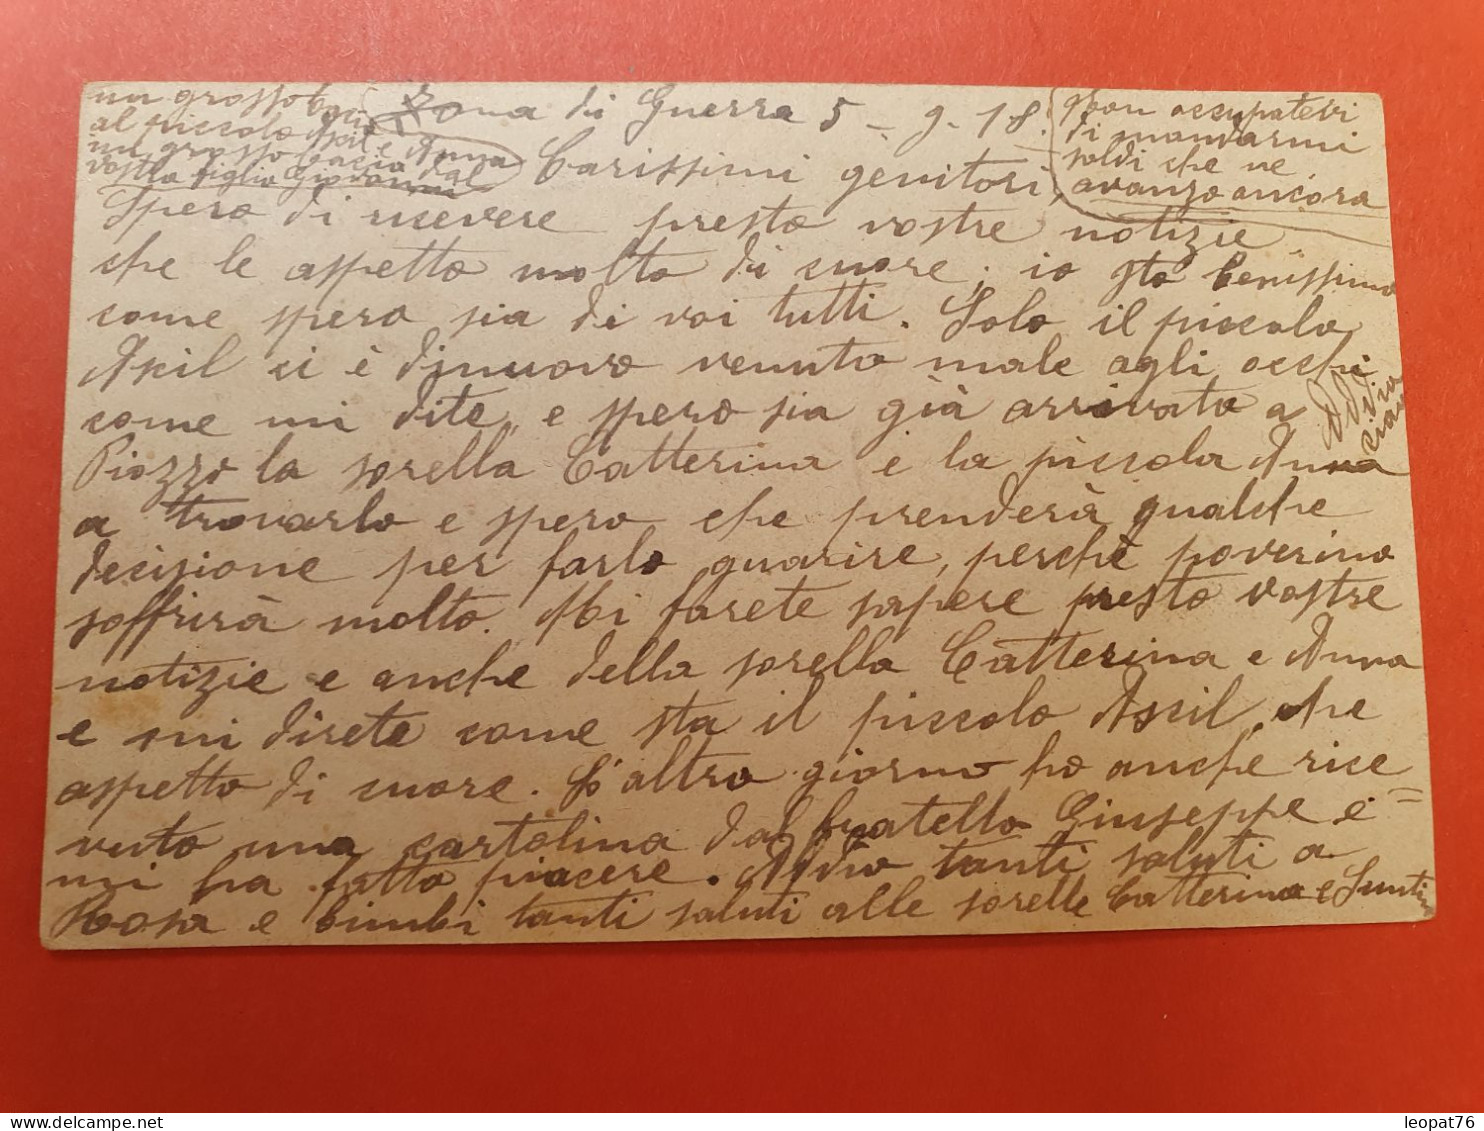 un grosso bacio
al piccolo Asil e Anna
un grosso bacio dal
vostro figlio Giovanni
Zona di Guerra 5 - 9 - 18.
Non occupatevi
di mandarmi
soldi che ne
avanzo ancora
Carissimi genitori,
Spero di ricevere presto vostre notizie
che le aspetto molto di cuore, io sto benissimo
come spero sia di voi tutti. Solo il piccolo
Asil ci è dinuovo venuto male agli occhi
come mi dite, e spero sia già arrivato a
Addio
ciau
Piozzo la sorella Catterina e la piccola Anna
a trovarlo e spero che prenderà qualche
decisione per farlo guarire, perchè poverino
soffrirà molto. Mi farete sapere presto vostre
notizie e anche della sorella Catterina e Anna
e mi direte come sta il piccolo Asil, che
aspetto di cuore. L'altro giorno ho anche rice=
vuto una cartolina dal fratello Giuseppe e
mi ha fatto piacere. Addio tanti saluti a
Rosa e bimbi tanti saluti alle sorelle Catterina e
leopat76